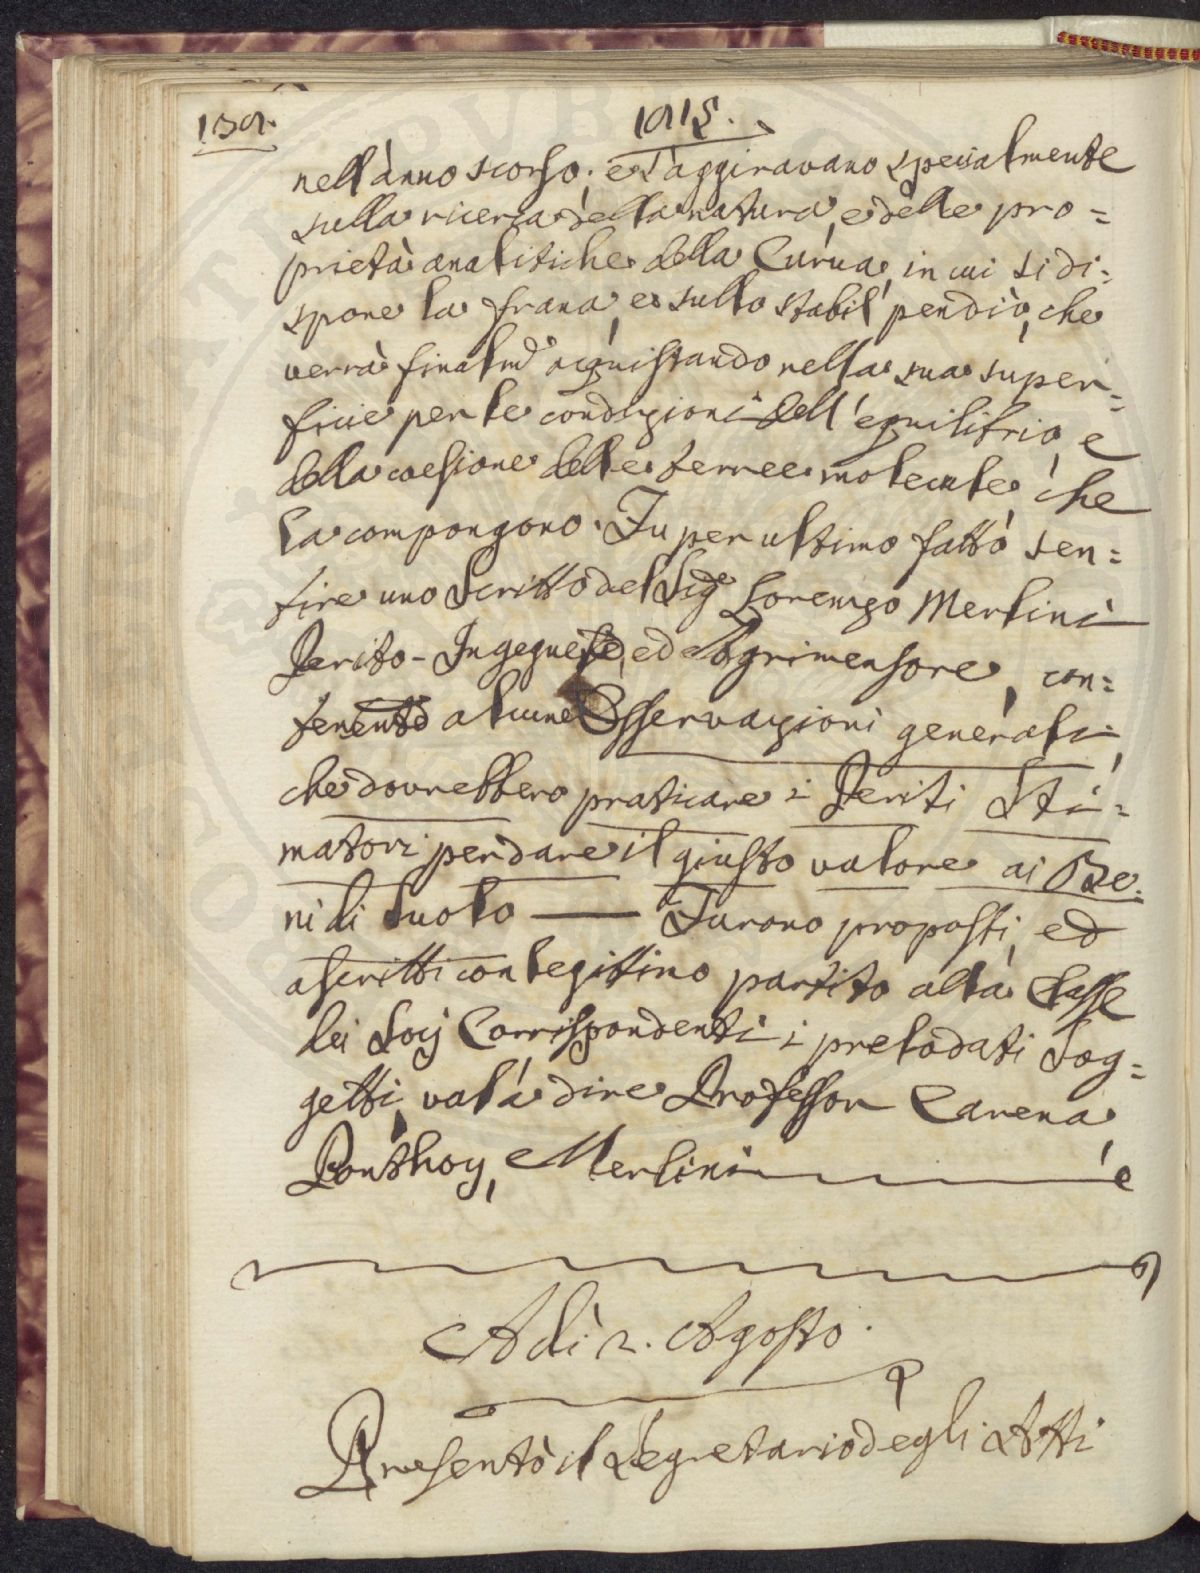 139.
1815.
nell'anno scorso; e s'aggiravano specialmente
sulla ricerca della natura, e delle pro=
prietà analitiche della Curva, in cui si di=
spone la frana, e sullo stabil pendio, che
verrà finalm.e acquistando nella sua super=
ficie per le condizioni dell'equilibrio, e
della coesione delle terree molecule, che
la compongono. Fu per ultimo fatto sen=
tire uno Scritto del Sig.e Lorenzo Merlini
Perito-Ingegnere, ed Agrimensore, con=
tenente alcune Osservazioni generali,
che dovrebbero praticare i Periti Sti=
matori per dare il giusto valore ai Be=
ni di Suolo — Furono proposti, ed
ascritti con legittimo partito alla Classe
dei Socj Corrispondenti i prelodati Sog=
getti, val'a dire Professor Carena,
Ponthoy, e Merlini
A dì 2. Agosto.
Presentò il Segretario degli Atti